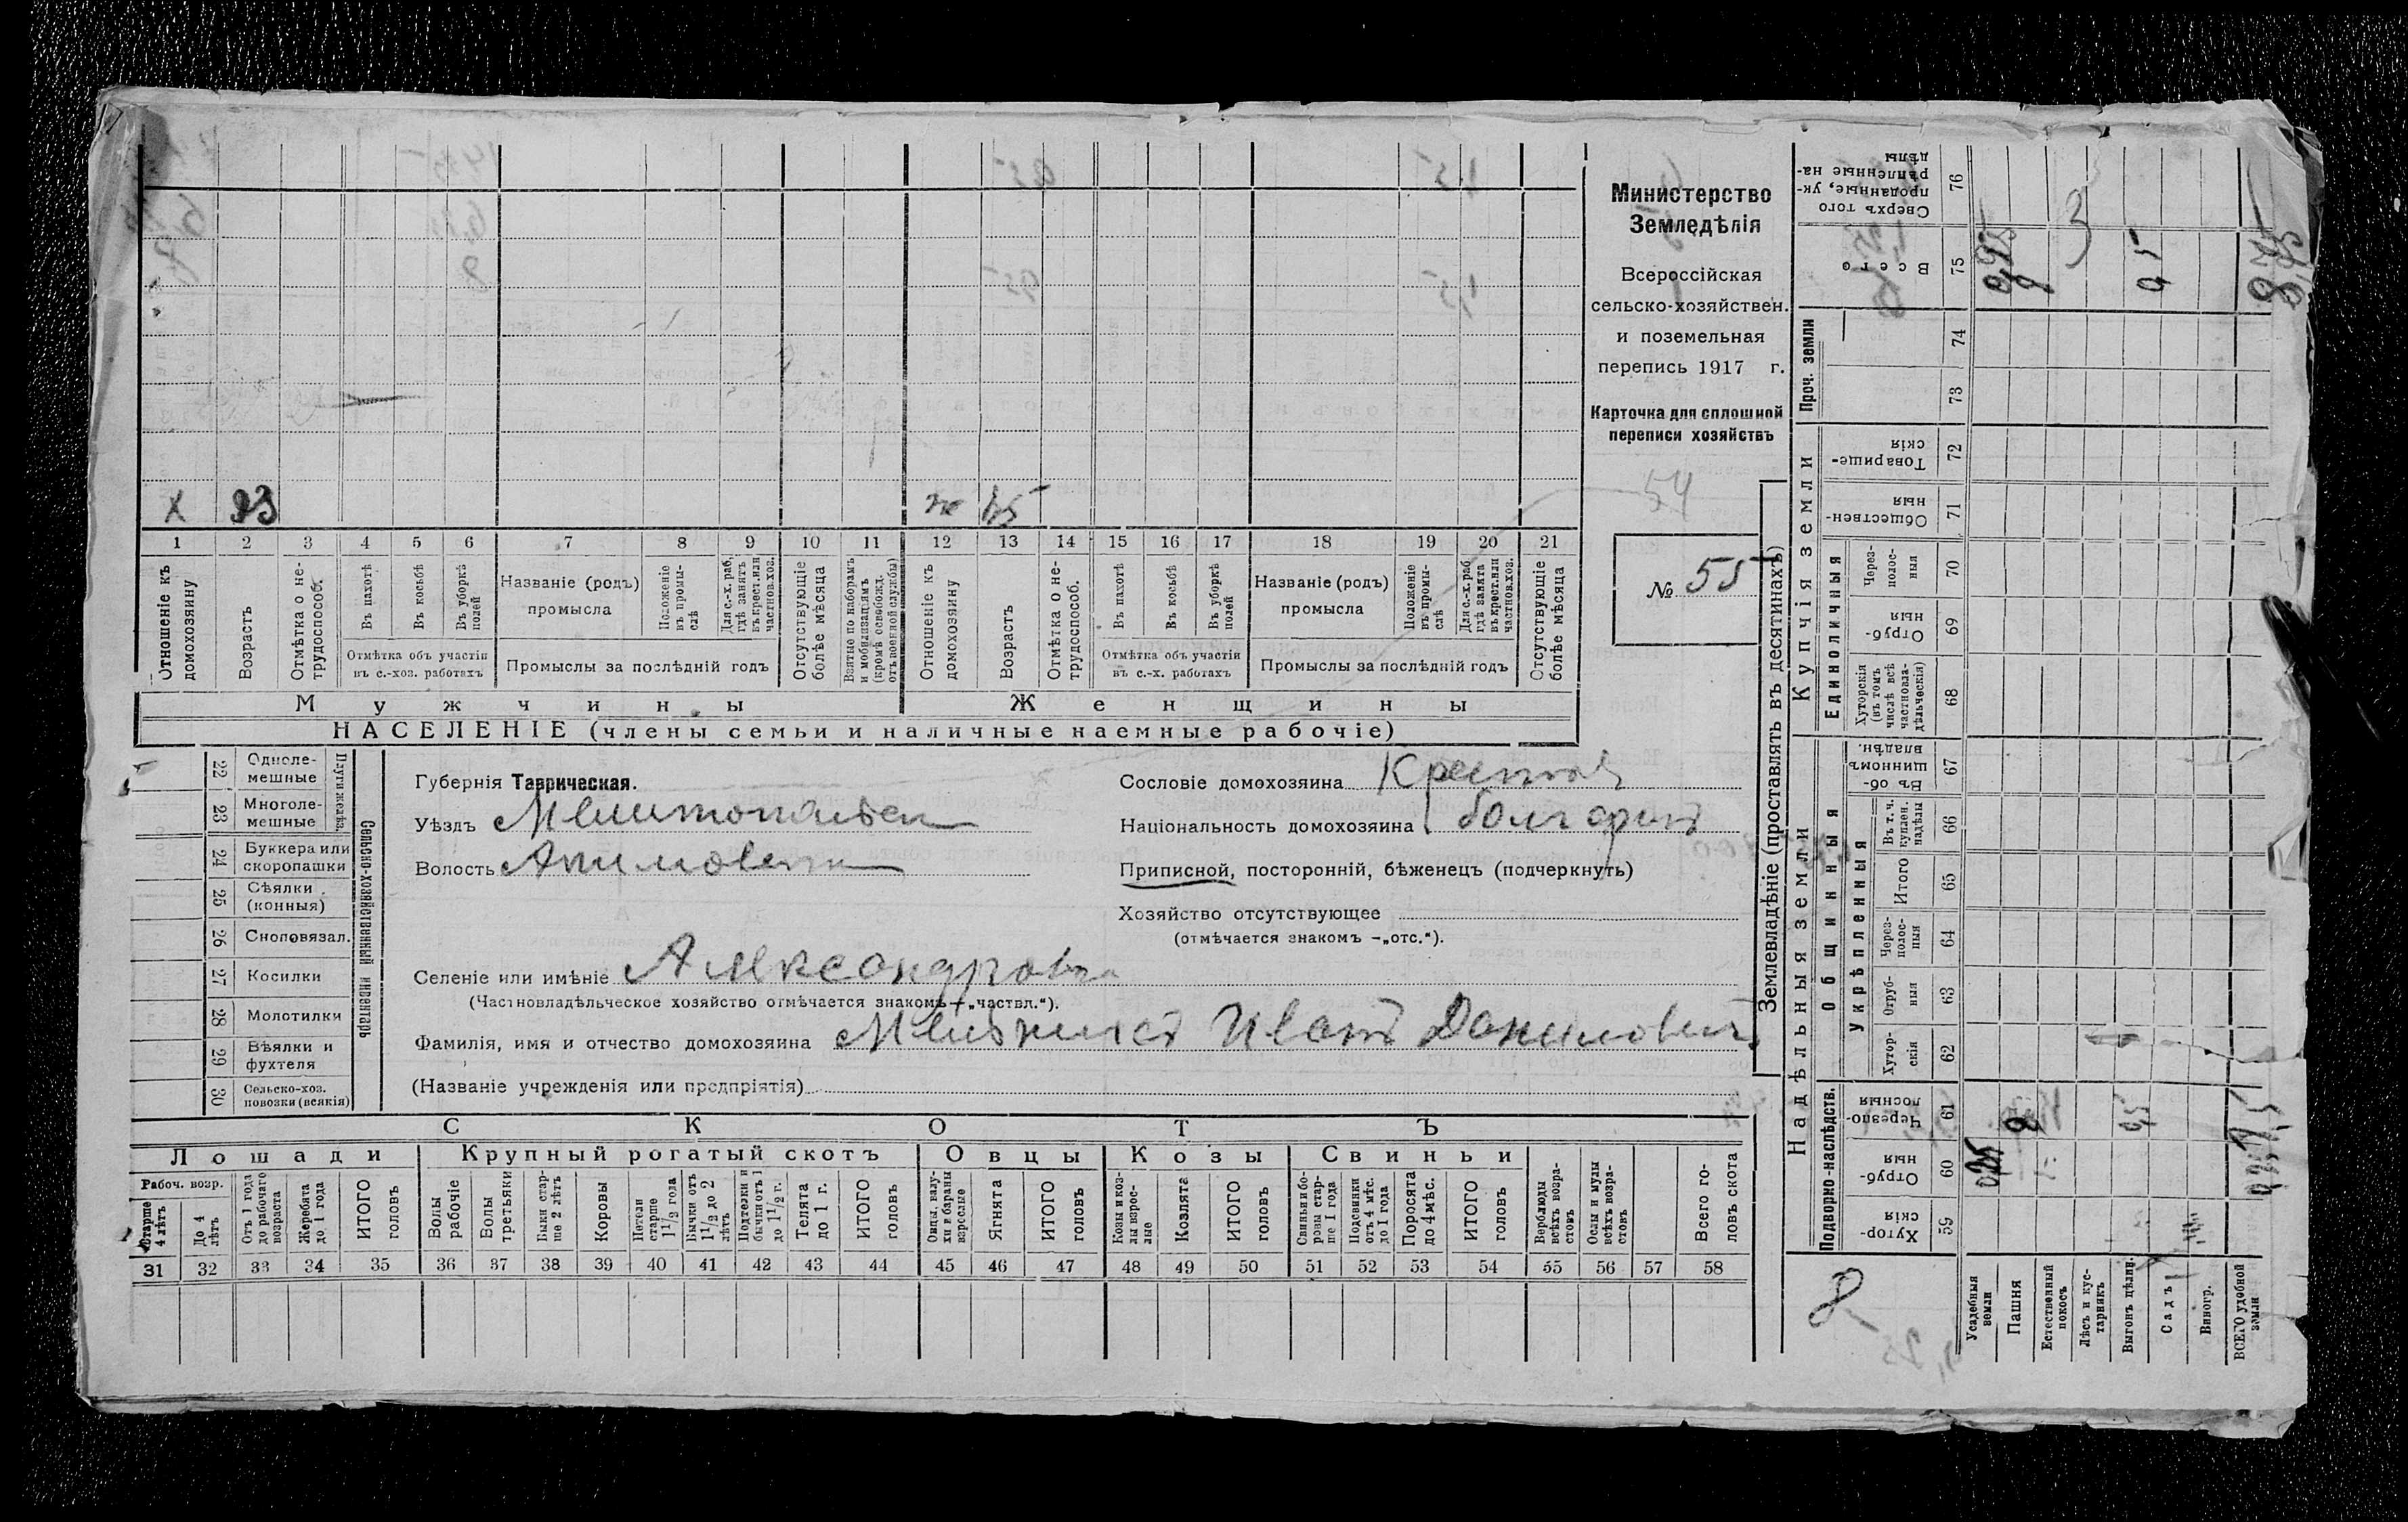 Министерство
Земледѣлія
Всероссійская
сельско-хозяйствен.
и поземельная
перепись 1917 г.
Карточка для сплошной
переписи хозяйствъ
54
№ 55
Х 23 ж 45
1 2 3 4 5 6 7 8 9 10 11 12 13 14 15 16 17 18 19 20 21
Отношеніе къ домохозяину
Возрастъ
Отмѣтка о не-трудоспособ.
Въ пахотѣ
Въ косьбѣ
Въ уборкѣ полей
Отмѣтка объ участіи
въ с.-хоз. работахъ
Названіе (родъ)
промысла
Положеніе въ промы-слѣ
Для с.-х. раб. гдѣ занятъ въ крест. или частнов. хоз.
Промыслы за послѣдній годъ
Отсутствующіе болѣе мѣсяца
Взятые по наборамъ и мобилизаціямъ (кромѣ освобожд. отъ военной службы)
Отношеніе къ домохозяину
Возрастъ
Отмѣтка о не-трудоспособ.
Въ пахотѣ
Въ косьбѣ
Въ уборкѣ полей
Отмѣтка объ участіи
въ с.-х. работахъ
Названіе (родъ)
промысла
Положеніе въ промы-слѣ
Для с.-х. раб. гдѣ занята въ крест. или частнов. хоз.
Промыслы за послѣдній годъ
Отсутствующіе болѣе мѣсяца
Мужчины Женщины
НАСЕЛЕНІЕ (члены семьи и наличные наемные рабочіе)
22 Одноле-мешные
23 Многоле-мешные
Плуги желѣз.
24 Буккера или скоропашки
25 Сѣялки (конныя)
26 Сноповязал.
27 Косилки
28 Молотилки
29 Вѣялки и фухтеля
30 Сельско-хоз. повозки (всякія)
Сельско-хозяйственный инвентарь
Губернія Таврическая.
Уѣздъ Мелитопольск
Волость Акимовска
Селеніе или имѣніе Александровка
(Частновладѣльческое хозяйство отмѣчается знакомъ – „частвл.“).
Фамилія, имя и отчество домохозяина Мельниковъ Иванъ Даниловичъ
(Названіе учрежденія или предпріятія)
Сословіе домохозяина Крестьян
Національность домохозяина болгаринъ
Приписной, посторонній, бѣженецъ (подчеркнуть)
Хозяйство отсутствующее
(отмѣчается знакомъ –„отс.“).
СКОТЪ
Лошади Крупный рогатый скотъ Овцы Козы Свиньи
Рабоч. возр.
Старше 4 лѣтъ
До 4 лѣтъ
Отъ 1 года до рабочаго возраста
Жеребята до 1 года
ИТОГО головъ
Волы рабочіе
Волы третьяки
Быки стар-ше 2 лѣтъ
Коровы
Нетели старше 1 1/2 года
Бычки отъ 1 1/2 до 2 лѣтъ
Подтелки и бычки отъ 1 до 1 1/2 г.
Телята до 1 г.
ИТОГО головъ
Овцы, валу-хи и бараны взрослые
Ягнята
ИТОГО головъ
Козы и коз-лы взрос-лые
Козлята
ИТОГО головъ
Свиньи и бо-ровы стар-ше 1 года
Подсвинки отъ 4 мѣс. до 1 года
Поросята до 4 мѣс.
ИТОГО головъ
Верблюды всѣхъ возра-стовъ
Ослы и мулы всѣхъ возра-стовъ
Всего го-ловъ скота
31 32 33 34 35 36 37 38 39 40 41 42 43 44 45 46 47 48 49 50 51 52 53 54 55 56 57 58
Землевладѣніе (проставлять въ десятинахъ)
Надѣльныя земли
Подворно-наслѣдств.
Хутор-скія 59
Отруб-ныя 60
Черезпо-лосныя 61
Общинныя
Укрѣпленныя
Хутор-скія 62
Отруб-ныя 63
Через-полос-ныя 64
Итого 65
Въ т. ч. куплен. надѣлы 66
Въ об-щинномъ владѣн. 67
Купчія земли
Единоличныя
Хуторскія (въ томъ числѣ всѣ частновла-дѣльческія) 68
Отруб-ныя 69
Через-полос-ныя 70
Обществен-ныя 71
Товарище-скія 72
Проч. земли
73
74
Всего 75
Сверхъ того проданные, ук-рѣпленные на-дѣлы 76
Усадебныя земли
Пашня
Естественный покосъ
Лѣсъ и кус-тарникъ
Выгонъ цѣлин.
Садъ
Виногр.
ВСЕГО удобной земли
8
3